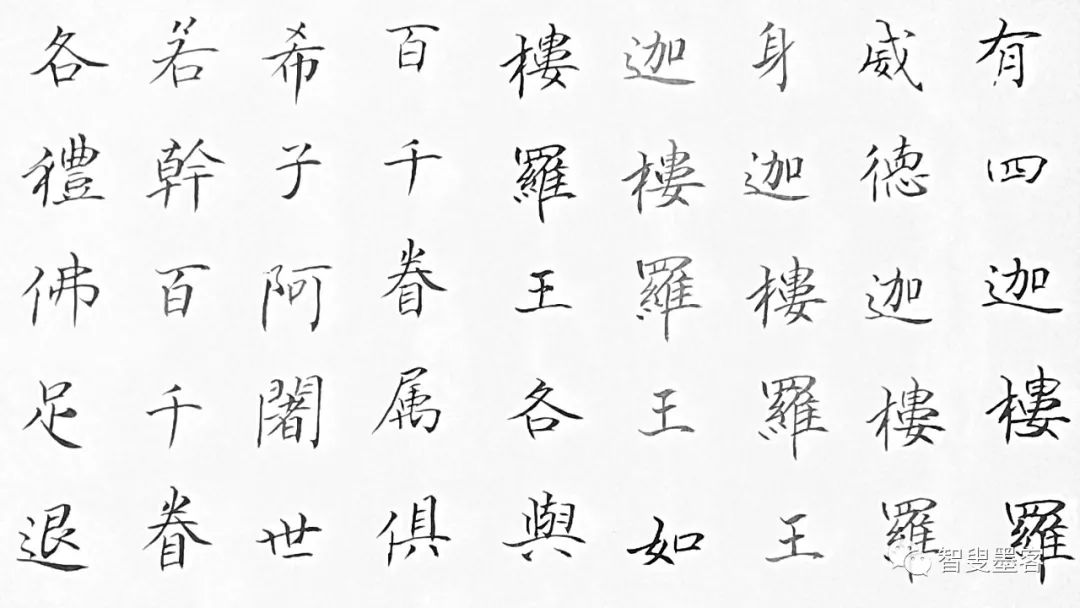 有四迦樓羅
威德迦樓羅
身迦樓羅王
迦樓羅王如
樓羅王各與
百千眷属俱
希子阿闍世
若幹百千眷
各禮佛足退
智叟墨客